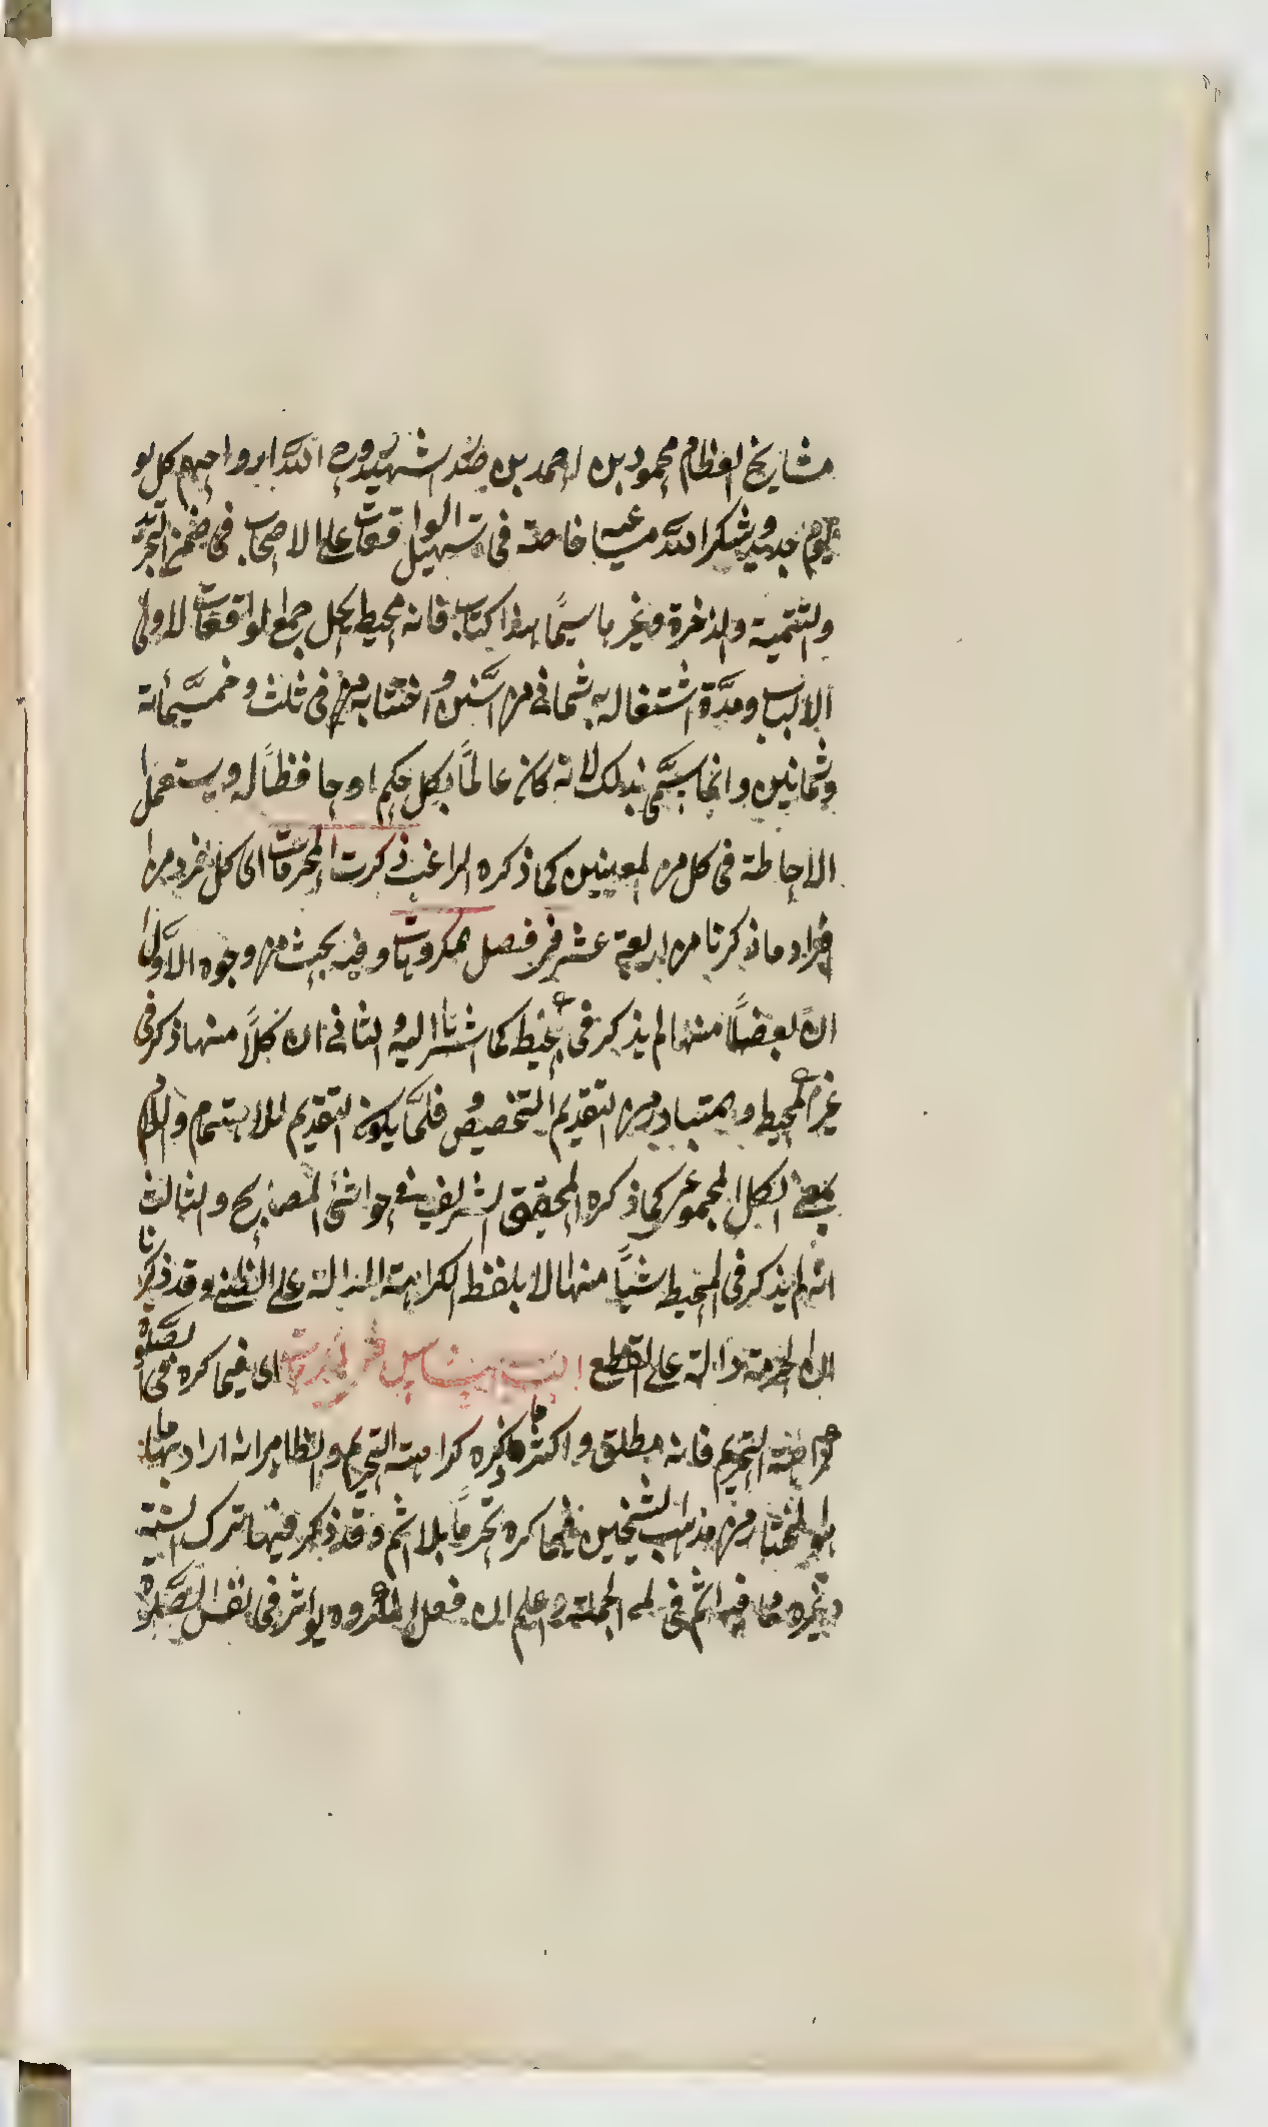 مشايخ العظام محمود بن احمد بن صدر الشهيد روح الله ارواحهم كل يو
يوم جديد وشكر الله مساعيه خاصة في تسهيل الواقعات على الاصحاب في ضمن التجريد
والتتمية والذخرة وغيرها سيما هذا كتاب فانه محيط بحل جمع لواقعات لاولى
الالباب ومدة اشتغاله به ثماني من السنين واختتابه في ثلث وخمسمائة
وثمانين وانما سمى بذلك لانه كان عالما بكل حكم او حافظا له ويستعمل
الاحاطة في كل من المعينين كما ذكره الراغب ذكرت المحرمات اى كل فرد من
افراد ما ذكرنا من اربعة عشر في فصل مكروهات وفيه بحث من وجوه الاول
ان بعضا منها لم يذكر في المحيط كما اشرنا اليه والثاني ان كلا منها ذكر في
غير المحيط والمتبادر من التقديم التخصيص فلما يكون التقديم للاهتمام واللام
بمعنى الكل المجموعي كما ذكره المحقق الشريف في حواشي المصابيح والثالث
انه لم يذكر في المحيط شيا منها الا بلفظ الكراهة الدالة على الظني وقد ذكرنا
ان الحرمة دالة على القطع الباب السادس في اى فيما كره في الصلوة
كراهة التحريم فانه مطلق واكثر ما ذكره كراهة التحريم والظاهر انه اراد بها ما
هو المختار من مذهب الشيخين فيما كره تحرما بلا اثم وقد ذكر فيها ترك السنة
وغيره مما فيه اثم في الجملة واعلم ان فعل المكروه يواثر في نفس الصلوة